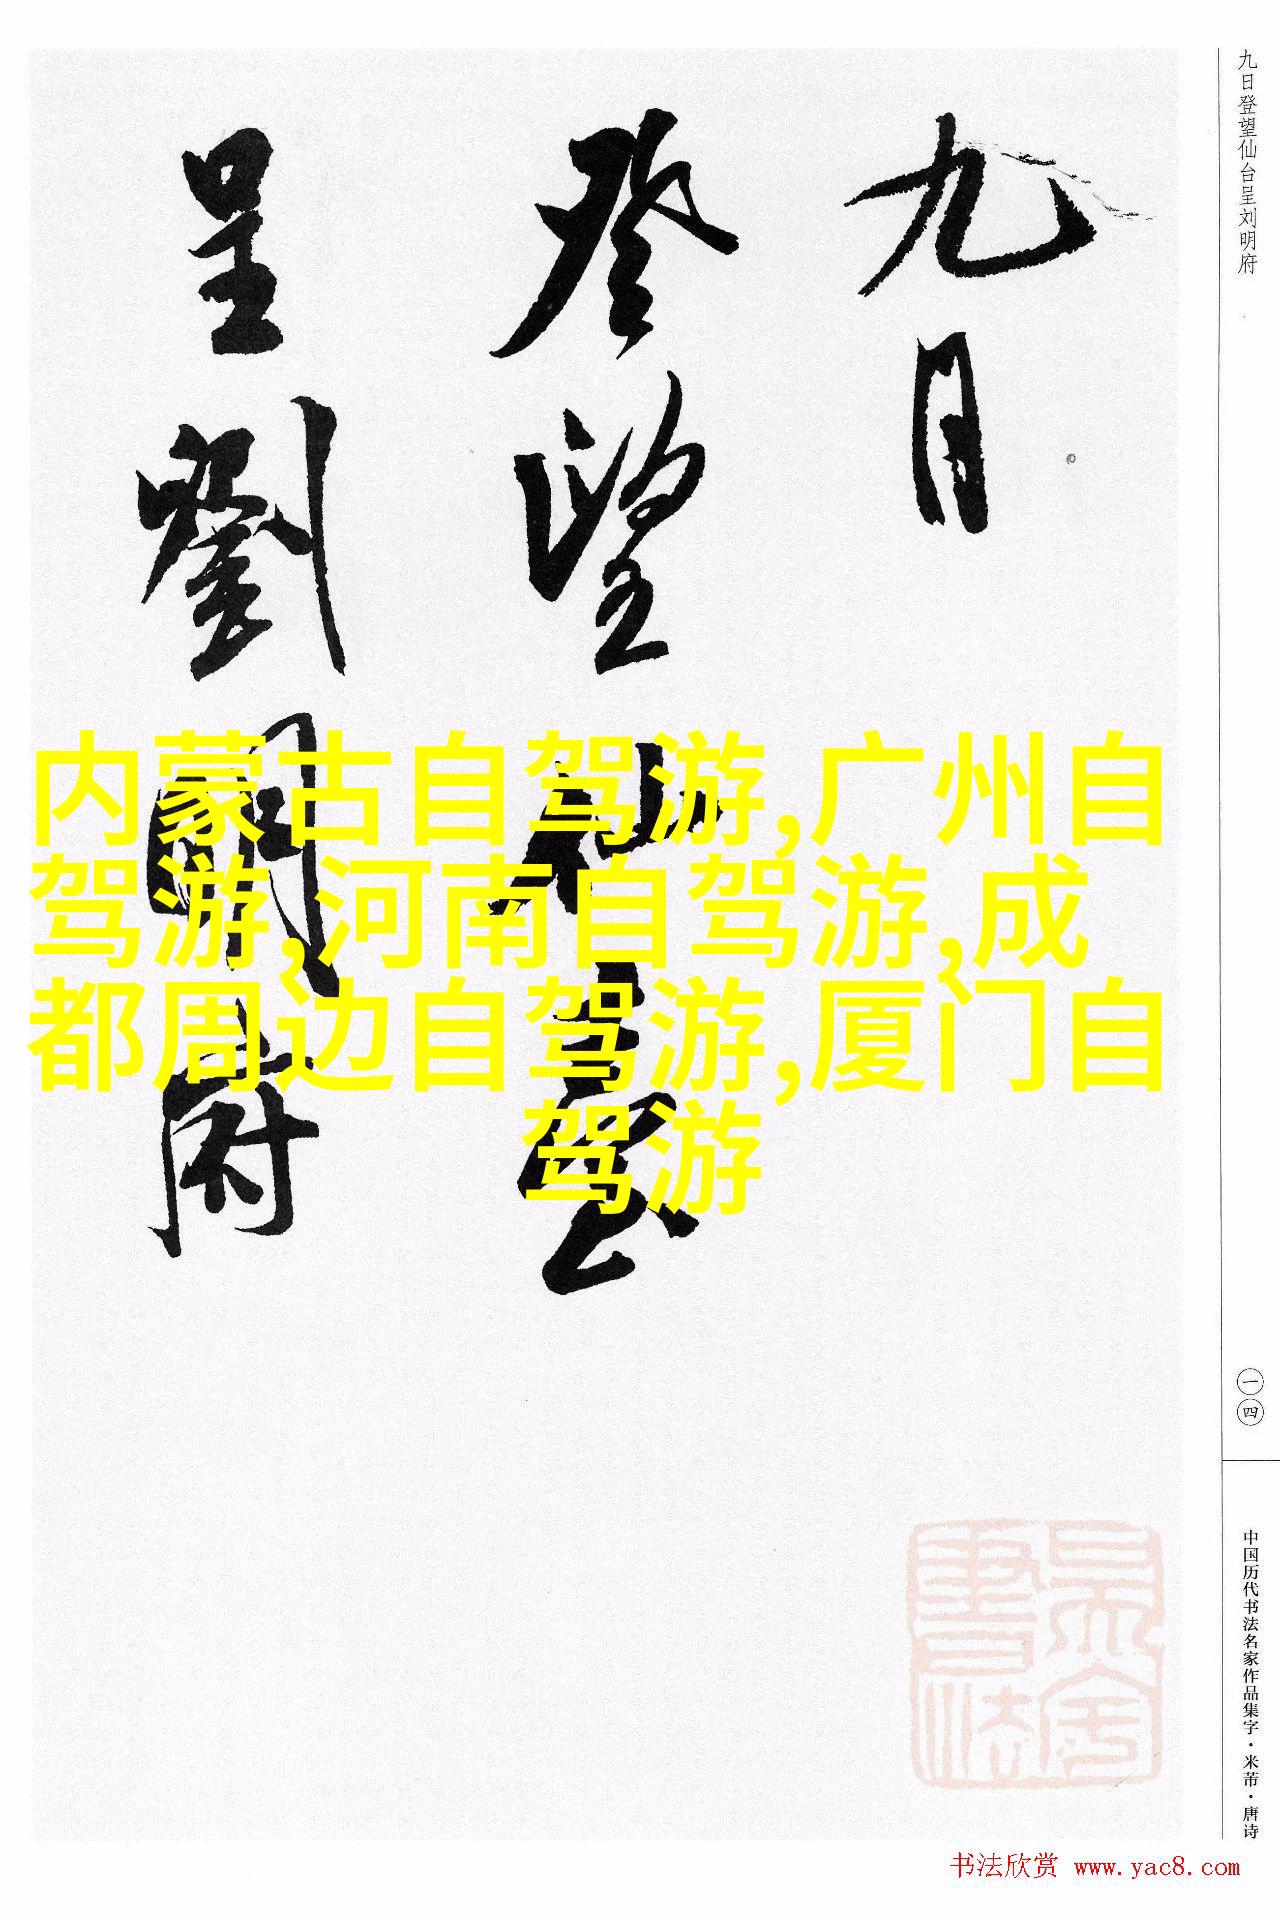 九日
登望仙臺
呈劉明府
内蒙古自驾游,广州自
驾游,河南自驾游,成
都周边自驾游,厦门自
驾游
九日登望仙台呈刘明府
一四
中国历代书法名家作品集字·米芾·唐诗
书法欣赏 www.yac8.com